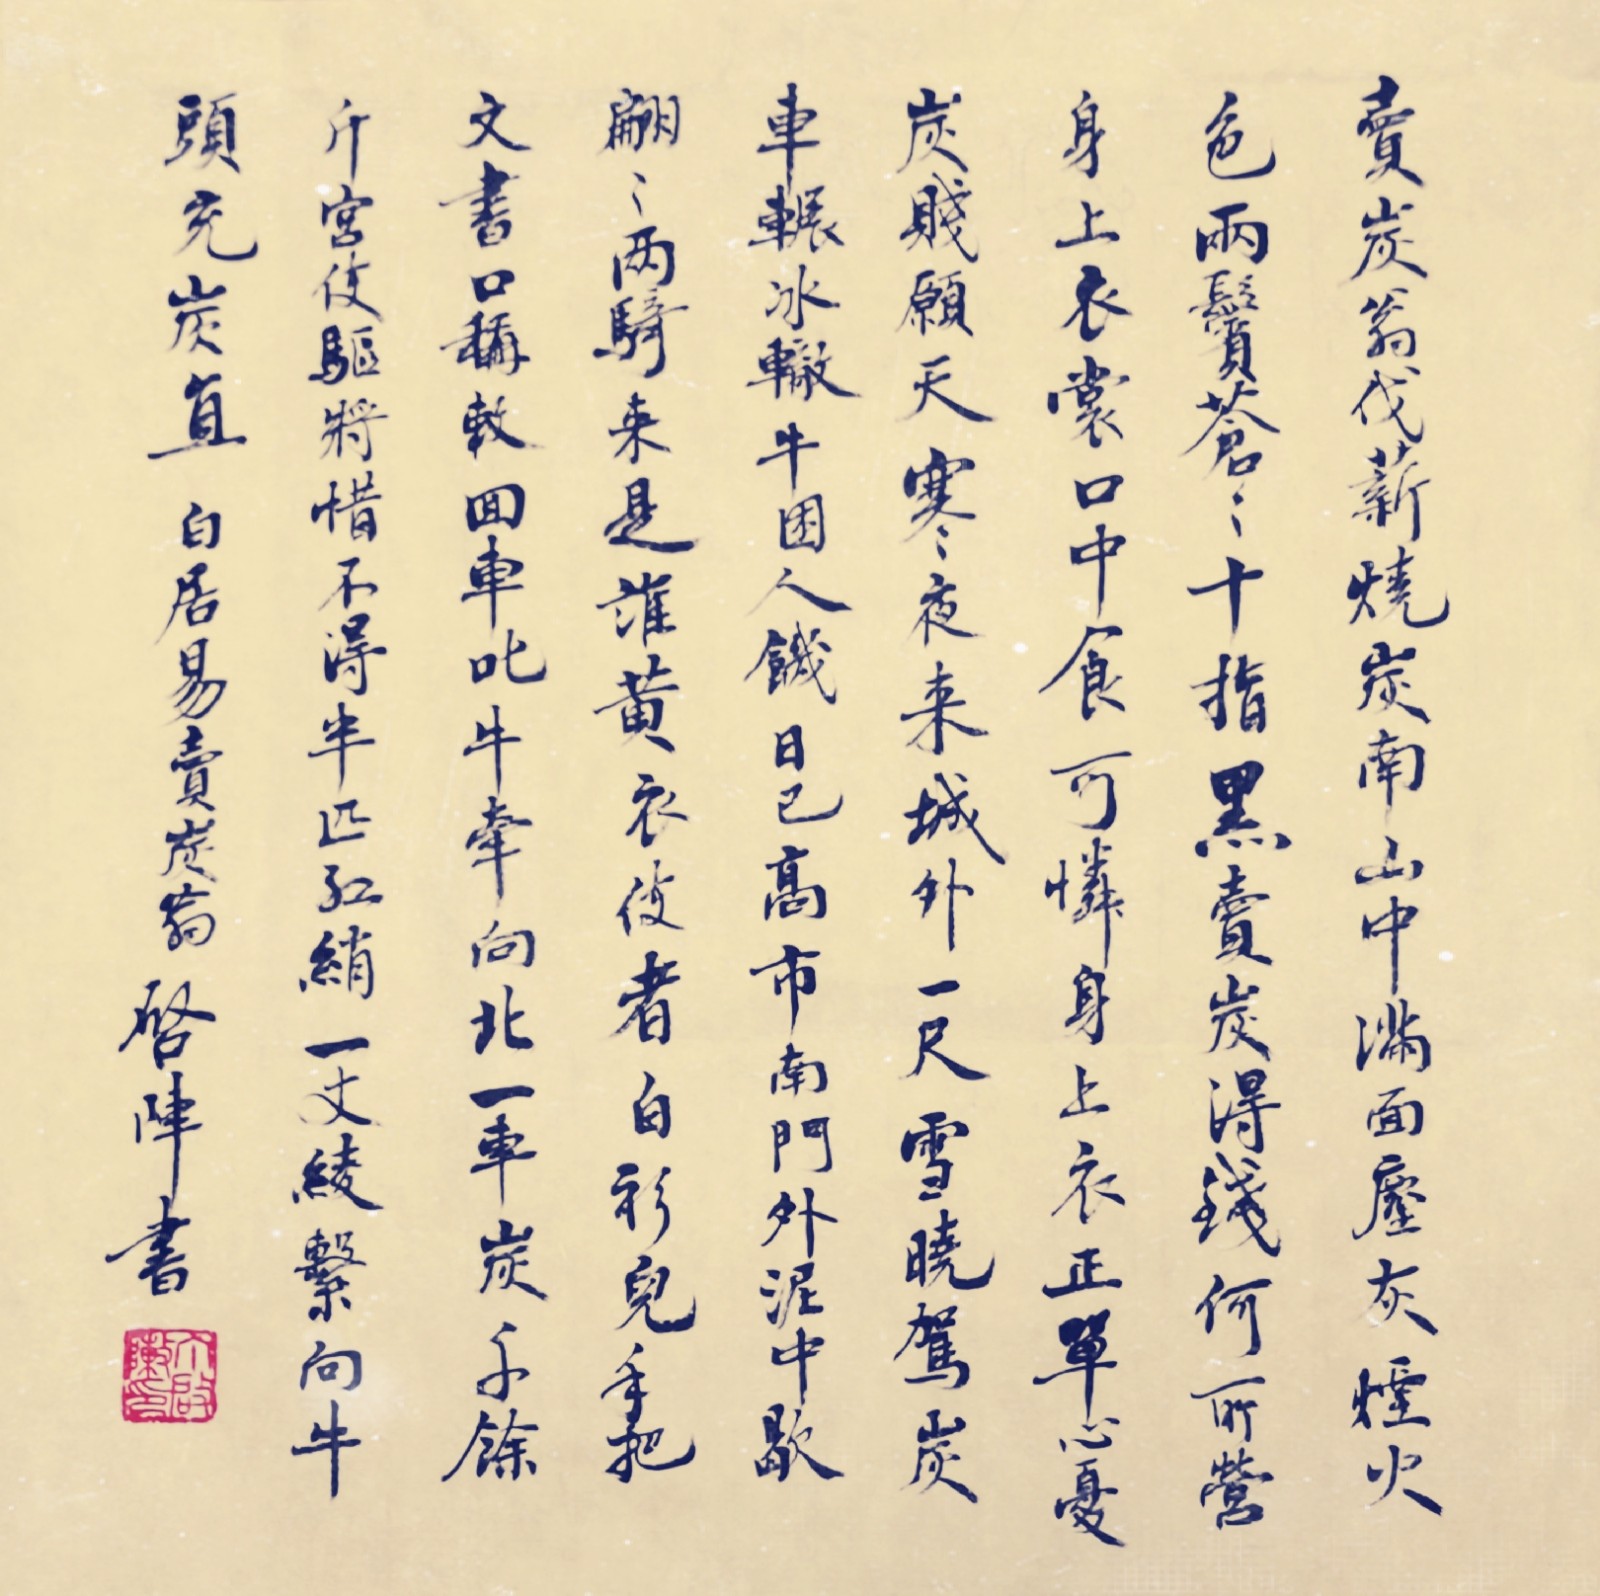 賣炭翁伐薪燒炭南山中滿面塵灰煙火
色兩鬢蒼〻十指黑賣炭得錢何所營
身上衣裳口中食可憐身上衣正單心憂
炭賤願天寒〻夜来城外一尺雪曉駕炭
車輾冰轍牛困人饑日已高市南門外泥中歇
翩〻两騎来是誰黄衣使者白衫兒手把
文書口稱敕回車叱牛牽向北一車炭千餘
斤宮使驅將惜不得半匹紅綃一丈綾繫向牛
頭充炭直 白居易賣炭翁 啓陣書